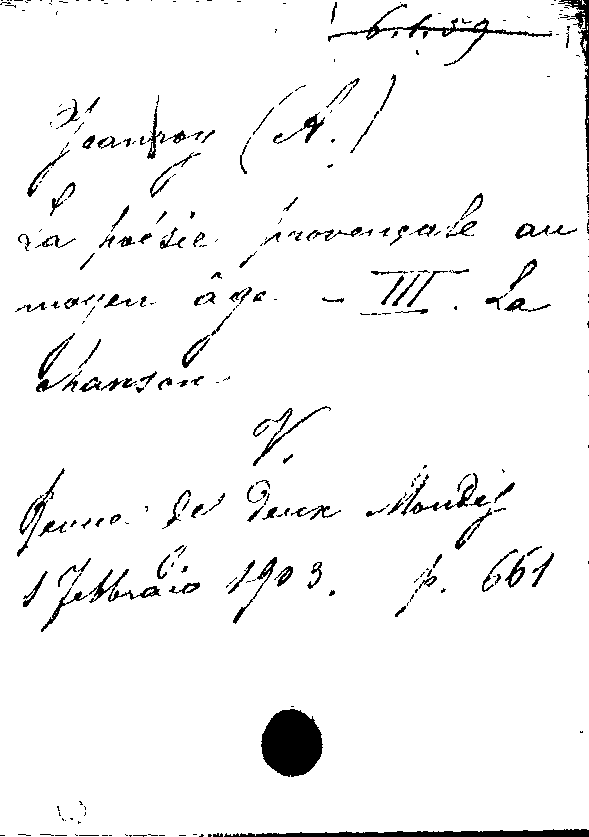 6.1.59
Jeanroy (A.)
La poésie provençale au
moyen âge - III. La
chanson
V.
Revue de deux Mondes
1 Febbraio 1903. p. 661